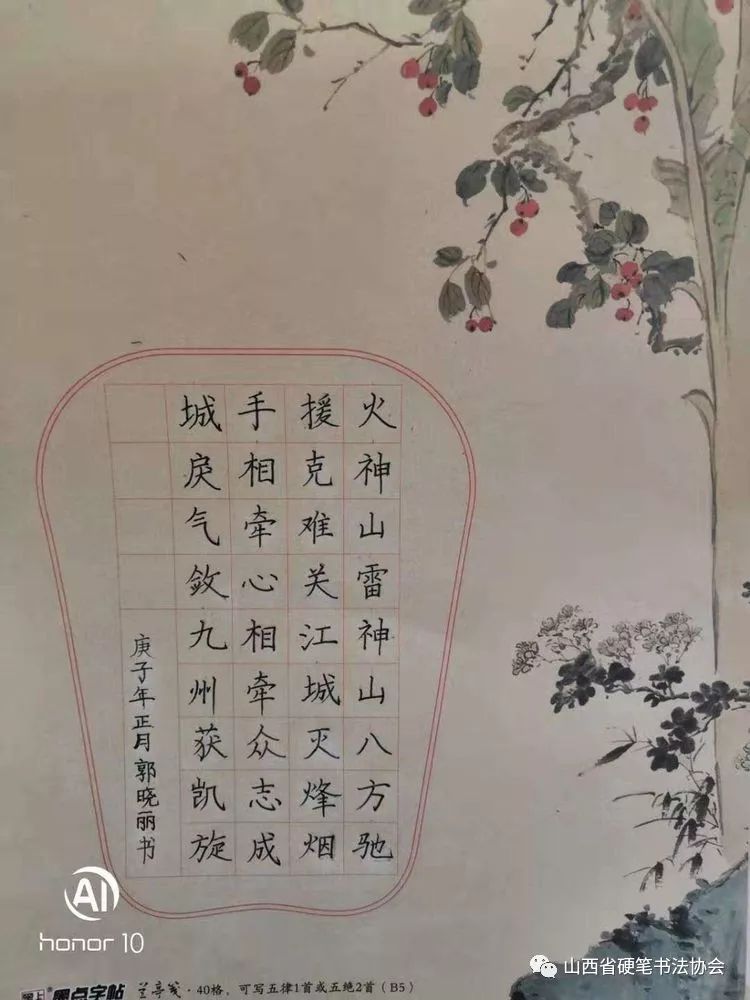 火神山雷神山八方驰
援克难关江城灭烽烟
手相牵心相牵众志成
城戾气敛九州获凯旋
庚子年正月郭晓丽书
AI
honor 10
墨点字帖 兰亭笺·40格,可写五律1首或五绝2首(B5)
山西省硬笔书法协会